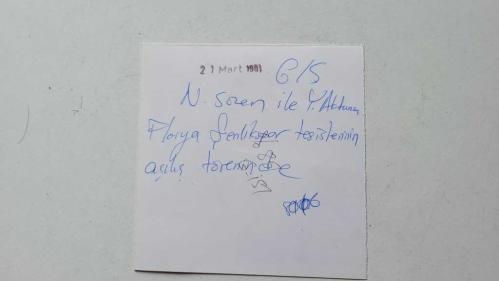 21 Mart 1991 G/S
N. Sözen ile Y. Aktuna
Florya Şenlikspor tesislerinin
açılış töreninde